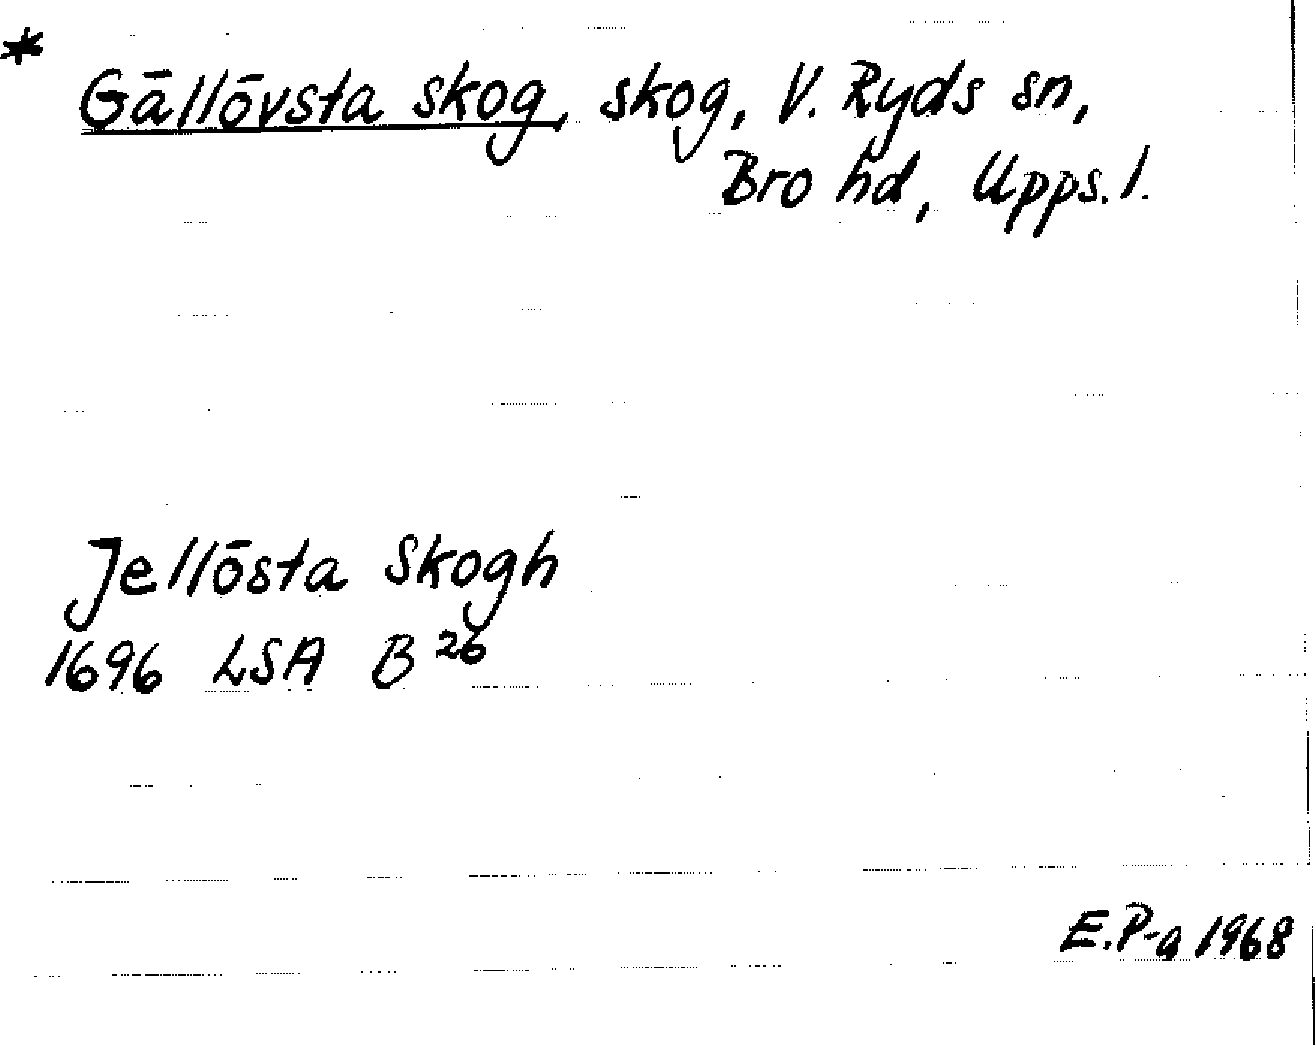 * Gällövsta skog, skog, V. Ryds sn,
Bro hd, Upps. l.
Jellösta Skogh
1696 LSA B 26
E.P-a 1968